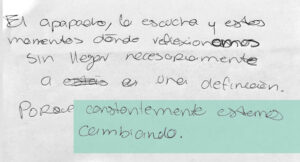 El apapacho, la escucha y estos
momentos dónde reflexionamos
sin llegar necesariamente
a es una definición.
Porque constantemente estamos
cambiando.